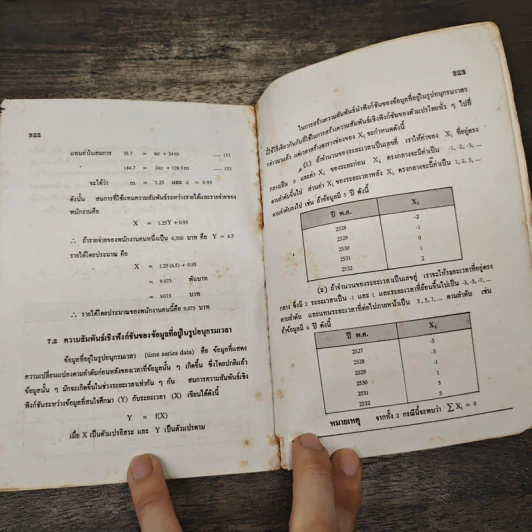 322
แทนค่าในสมการ 23.7 = 4c + 24m ..... (1)
184.7 = 24c + 129.5 m ..... (2)
จะได้ว่า m = 1.25 และ c = 0.95
ดังนั้น สมการที่ใช้แทนความสัมพันธ์ระหว่างรายได้และรายจ่ายของ
พนักงานคือ
X = 1.25Y + 0.95
∴ ถ้ารายจ่ายของพนักงานคนหนึ่งเป็น 6,500 บาท คือ Y = 6.5
รายได้โดยประมาณ คือ
X = 1.25 (6.5) + 0.95
= 9.075 พันบาท
= 9075 บาท
∴ รายได้โดยประมาณของพนักงานคนนี้คือ 9,075 บาท
7.2 ความสัมพันธ์เชิงฟังก์ชันของข้อมูลที่อยู่ในรูปอนุกรมเวลา
ข้อมูลที่อยู่ในรูปอนุกรมเวลา (time series data) คือ ข้อมูลที่แสดง
ความเปลี่ยนแปลงตามลำดับก่อนหลังของเวลาที่ข้อมูลนั้น ๆ เกิดขึ้น ซึ่งโดยปกติแล้ว
ข้อมูลนั้น ๆ มักจะเกิดขึ้นในช่วงระยะเวลาเท่ากัน ๆ กัน สมการความสัมพันธ์เชิง
ฟังก์ชันระหว่างข้อมูลที่สนใจศึกษา (Y) กับระยะเวลา (X) เขียนได้ดังนี้
Y = f(X)
เมื่อ X เป็นตัวแปรอิสระ และ Y เป็นตัวแปรตาม
323
ในการสร้างความสัมพันธ์เชิงฟังก์ชันของข้อมูลที่อยู่ในรูปอนุกรมเวลา
นี้ใช้วิธีเดียวกันกับที่ใช้ในการสร้างความสัมพันธ์เชิงฟังก์ชันของตัวแปรโดยทั่ว ๆ ไปที่
กล่าวมาแล้ว แต่เวลาสร้างตารางช่องของ Xᵢ จะกำหนดดังนี้
(1) ถ้าจำนวนของระยะเวลาเป็นเลขคี่ เราให้ค่าของ Xᵢ ที่อยู่ตรง
กลางเป็น 0 และค่า Xᵢ ของระยะก่อน Xᵢ ตรงกลางจะมีค่าเป็น -1, -2, -3, ...
ตามลำดับขึ้นไป ส่วนค่า Xᵢ ของระยะเวลาหลัง Xᵢ ตรงกลางจะมีค่าเป็น 1, 2, 3, ...
ตามลำดับลงไป เช่น ถ้าข้อมูลมี 5 ปี ดังนี้
ปี พ.ศ. Xᵢ
2528 -2
2529 -1
2530 0
2531 1
2532 2
(2) ถ้าจำนวนของระยะเวลาเป็นเลขคู่ เราจะให้ระยะเวลาที่อยู่ตรง
กลาง ซึ่งมี 2 ระยะเวลาเป็น -1 และ 1 และระยะเวลาที่ย้อนขึ้นไปเป็น -3, -5, -7, ...
ตามลำดับ และแทนระยะเวลาที่ถัดไปภายหน้าเป็น 3, 5, 7, ... ตามลำดับ เช่น
ถ้าข้อมูลมี 6 ปี ดังนี้
ปี พ.ศ. Xᵢ
2527 -5
2528 -3
2529 -1
2530 1
2531 3
2532 5
หมายเหตุ จากทั้ง 2 กรณีนี้จะพบว่า ∑ Xᵢ = 0